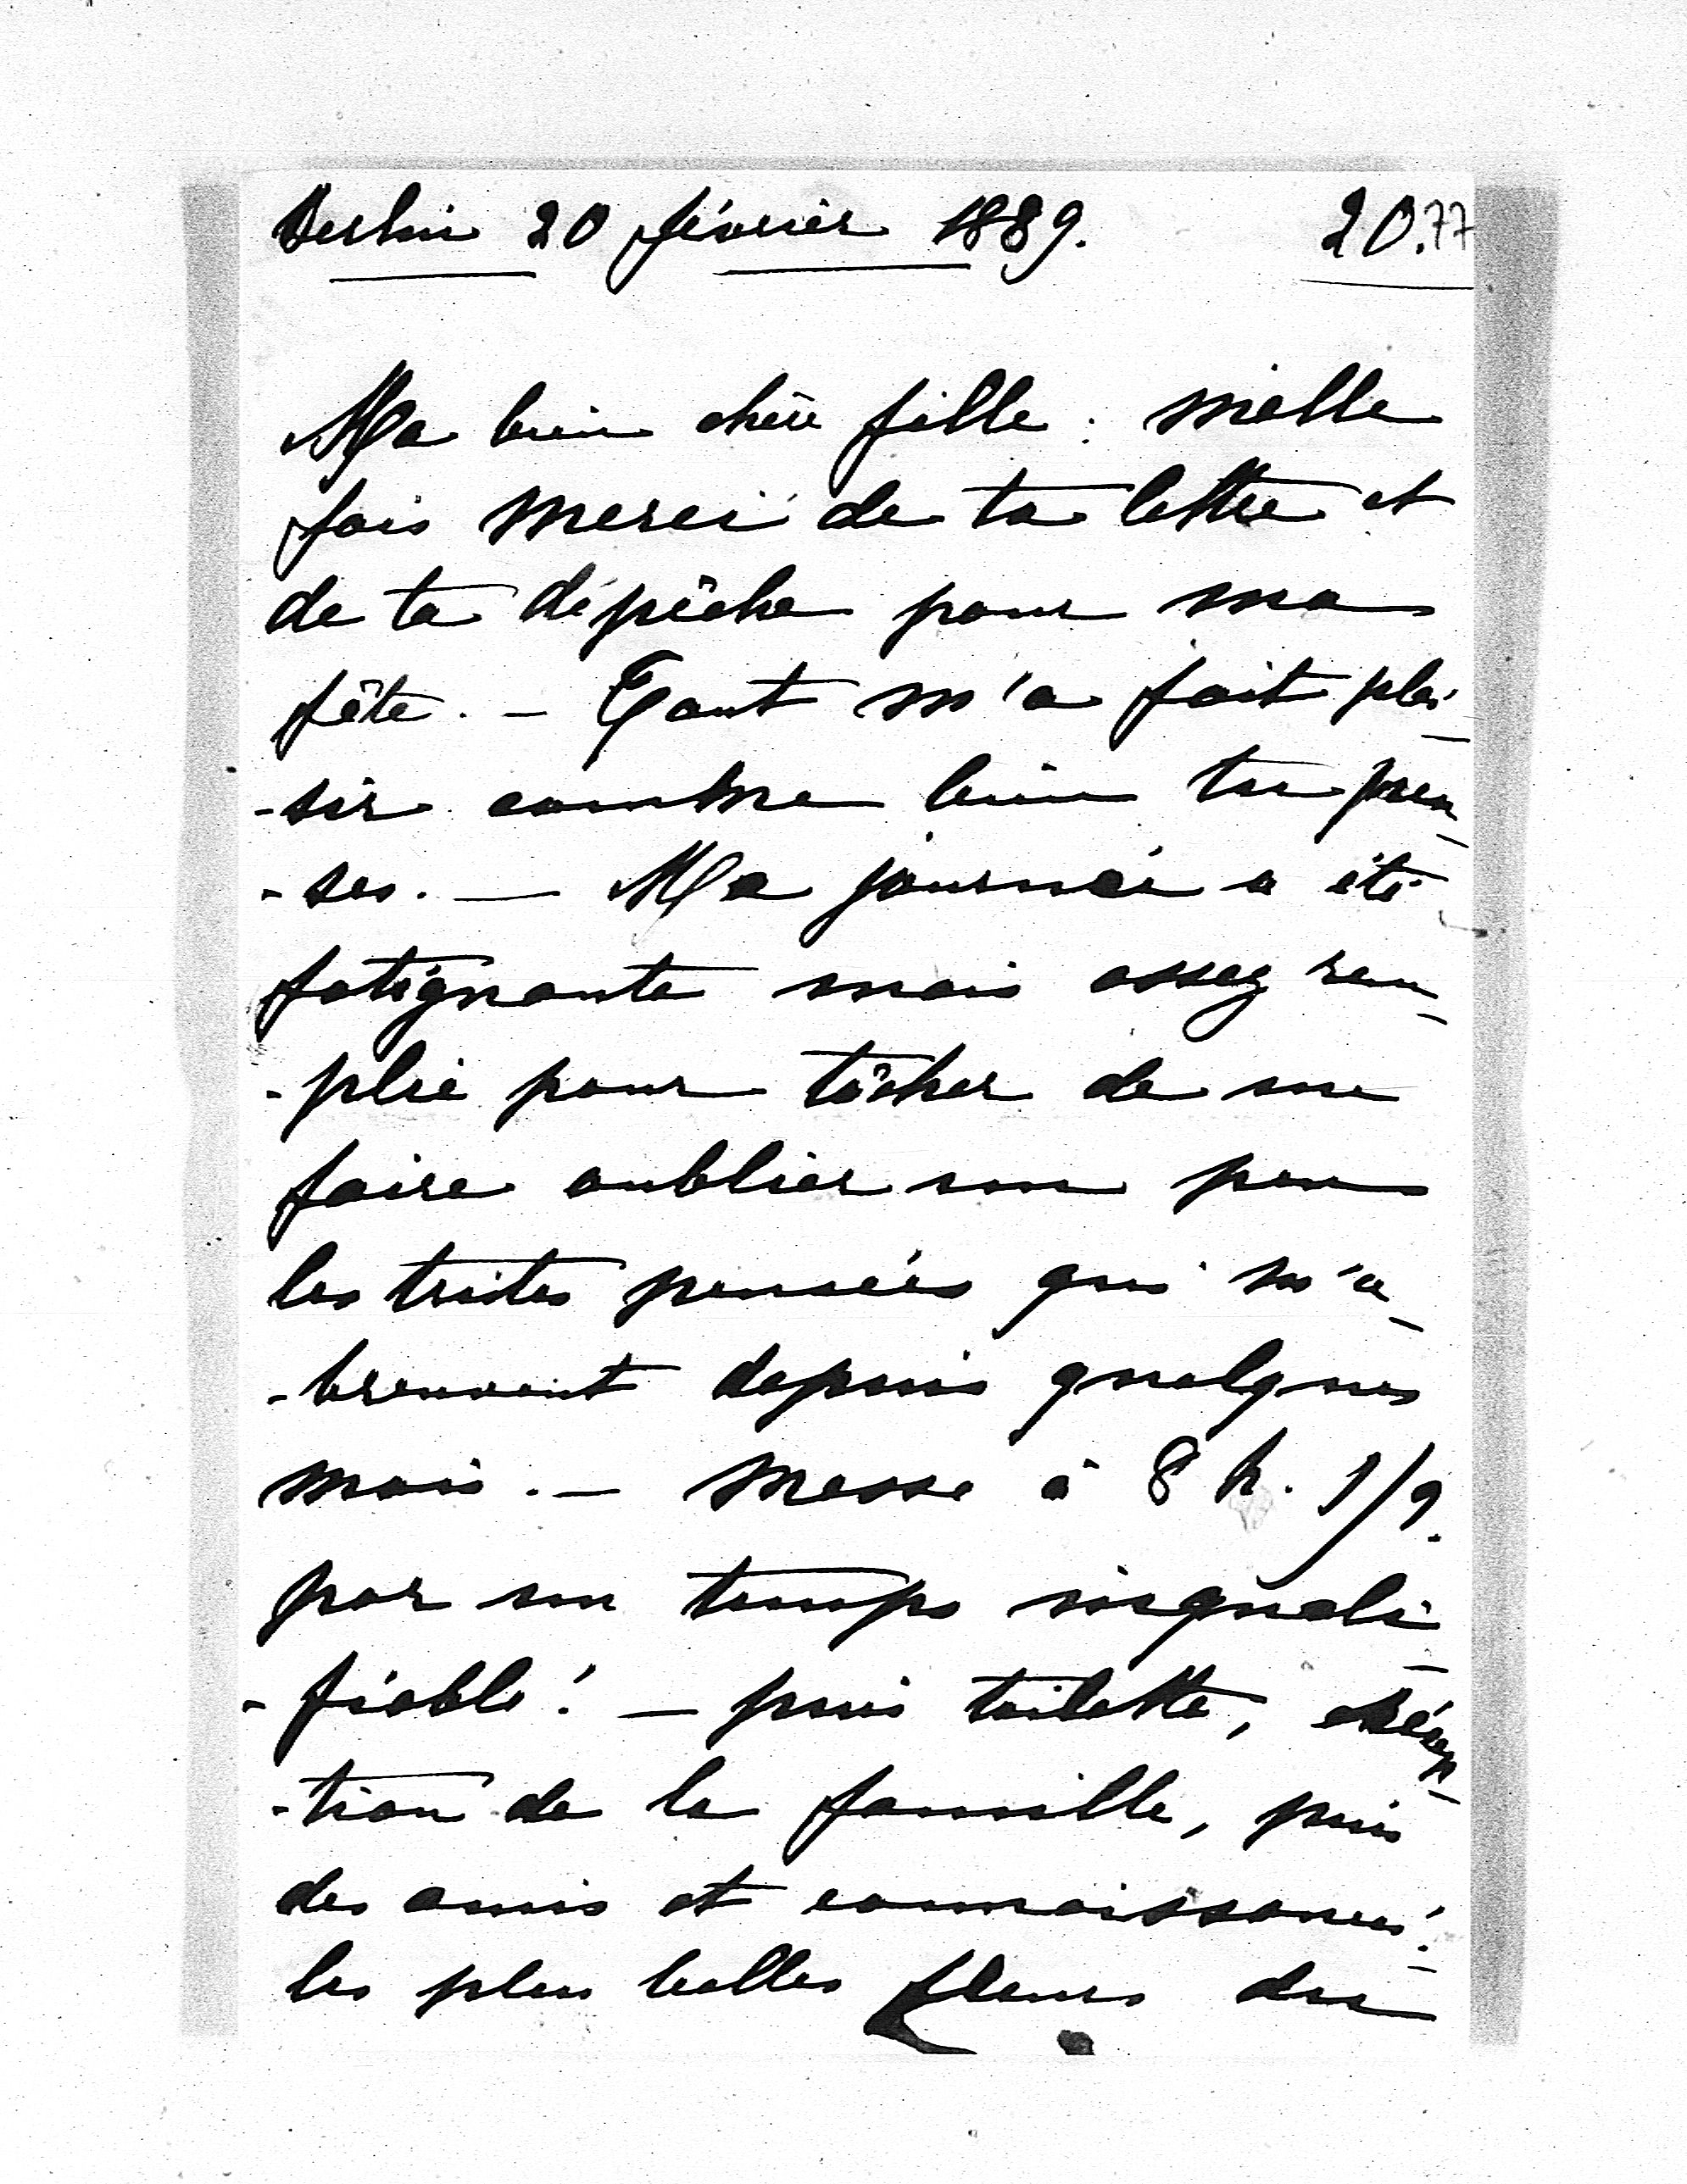 Berlin 20 février 1889. 20.77
Ma bien chère fille : mille
fois merci de ta lettre et
de ta dépêche pour ma
fête. – Tout m'a fait plai-
-sir comme bien tu pen-
-ses. – Ma journée a été
fatigante mais assez rem-
-plie pour tâcher de me
faire oublier un peu
les tristes pensées qui m'a-
-breuvent depuis quelques
mois. – Messe à 8 h. 1/2.
par un temps inquali-
-fiable! – puis toilette, récep-
-tion de la famille, puis
des amis et connaissances!
les plus belles fleurs du